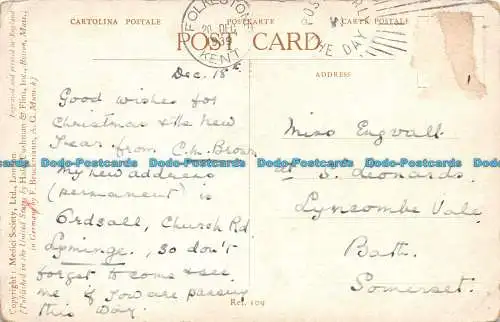 CARTOLINA POSTALE POSTKARTE
POST CARD
FOLKESTONE
20 DEC
KENT
POST EARL
THE DAY
ADDRESS
Dec. 18th
Good wishes for
Christmas & the New
Year from C.M. Brown
My new address
(permanent) is
Ordsall, Church Rd
Lyminge, so don't
forget to come & see
me if you are passing
this way.
Miss Engvall
at S. Leonards
Lyncombe Vale
Bath
Somerset.
Ref. 109
Copyright: Medici Society, Ltd., London.
(Published in the United States by Hale, Cushman & Flint, Inc., Boston, Mass.,
in Germany by F. Bruckmann, A.G. Munich)
Dodo-Postcards Dodo-Postcards Dodo-Postcards Dodo-Postcards Dodo-Postcards